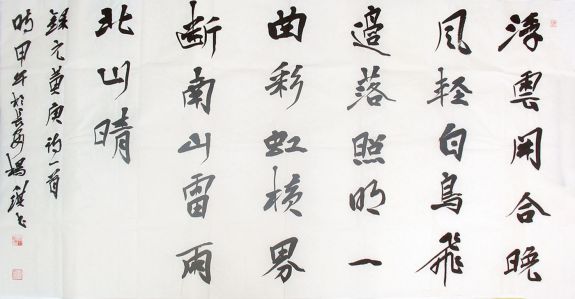 浮雲開合晚
風輕白鳥飛
邊落照明一
曲彩虹横界
断南山雷雨
北山晴
錄元黄庚詩一首
時甲午於長安楊